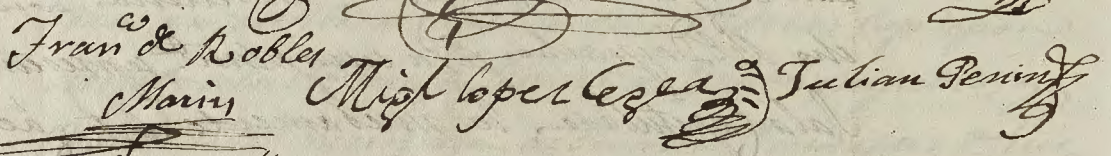 Fran.co de Robles
Marin
Migl lopez Cegea
Julian Penin